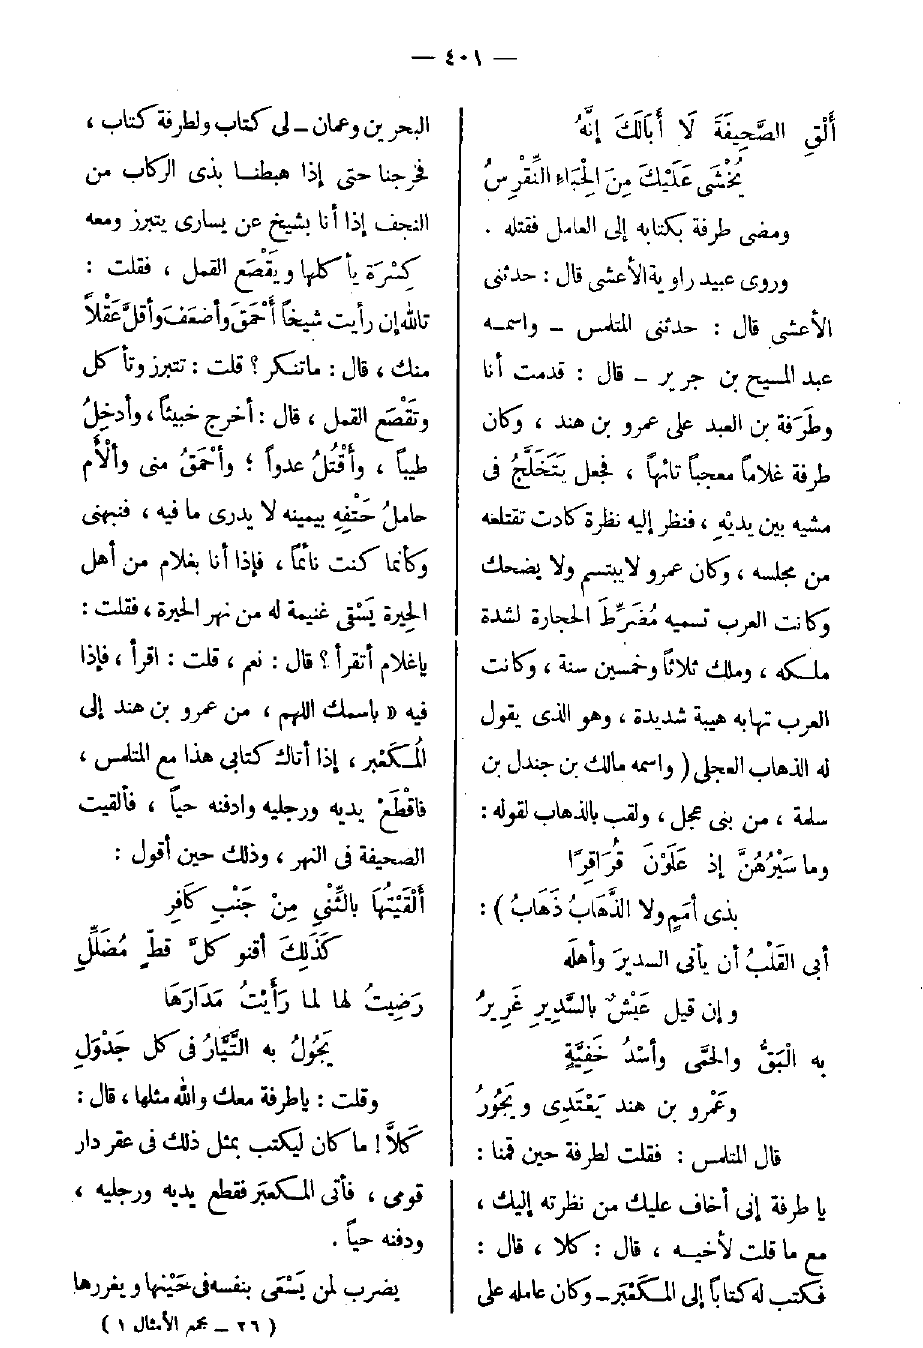 — ٤٠١ —
أَلْقِ الصَّحِيفَةَ لَا أَبَالَكَ إِنَّهُ
يُخْشَى عَلَيْكَ مِنَ الْحِبَاءِ النِّقْرِسُ
ومضى طرفة بكتابه إلى العامل فقتله .
وروى عبيد راوية الأعشى قال : حدثنى
الأعشى قال : حدثنى المتلمس — واسمه
عبد المسيح بن جرير — قال : قدمت أنا
وطَرَفة بن العبد على عمرو بن هند ، وكان
طرفة غلاماً معجباً تائهاً ، فجعل يَتَخَلَّجُ فى
مشيه بين يديْهِ ، فنظر إليه نظرة كادت تقتلعه
من مجلسه ، وكان عمرو لايبتسم ولا يضحك
وكانت العرب تسميه مُضَرِّطَ الحجارة لشدة
ملكه ، وملك ثلاثاً وخمسين سنة ، وكانت
العرب تهابه هيبة شديدة ، وهو الذى يقول
له الذهاب العجلى ( واسمه مالك بن جندل بن
سلمة ، من بنى عجل ، ولقب بالذهاب لقوله :
وما سَيْرُهُنَّ إذ عَلَوْنَ قُرَاقِرًا
بذى أمَمٍ ولا الذَّهَابُ ذَهَابُ ) :
أبى القَلْبُ أن يأتى السديرَ وأهلَه
وإن قيل عَيْشٌ بالسَّدِيرِ غَرِيرُ
به الْبَقُّ والحمَّى وأسْدُ خَفِيَّةٍ
وعَمْرو بن هند يَعْتَدِى ويَجُورُ
قال المتلمس : فقلت لطرفة حين قمنا :
يا طرفة إنى أخاف عليك من نظرته إليك ،
مع ما قلت لأخيه ، قال : كلا ، قال :
فكتب له كتاباً إلى المكَعْبَر — وكان عامله على
البحرين وعمان — لى كتاب ولطرفة كتاب ،
فخرجنا حتى إذا هبطنا بذى الركاب من
النجف إذا أنا بشيخ عن يسارى يتبرز ومعه
كِسْرَة يأكلها ويَقْصَع القمل ، فقلت :
تالله إن رأيت شيخاً أحْمَقَ وأضعَفَ وأقلَّ عَقْلاً
منك ، قال : ماتنكر ؟ قلت : تتبرز وتأكل
وتَقْصَع القمل ، قال : أخرج خبيثاً ، وأدخِلُ
طيباً ، وأقْتُلُ عدواً ؛ وأحْمَقُ منى وألْأَم
حاملُ حَتْفِهِ بيمينه لا يدرى ما فيه ، فنبهنى
وكأنما كنت نائماً ، فإذا أنا بغلام من أهل
الحِيرة يَسْقِى غنيمة له من نهر الحيرة ، فقلت :
ياغلام أتقرأ ؟ قال : نعم ، قلت : اقرأ ، فإذا
فيه « باسمك اللهم ، من عمرو بن هند إلى
المُكَعْبر ، إذا أتاك كتابى هذا مع المتلمس ،
فاقْطَعْ يديه ورجليه وادفنه حياً ، فألقيت
الصحيفة فى النهر ، وذلك حين أقول :
أَلْقَيْتُهَا بالثِّنْىِ مِنْ جَنْبِ كَافِرٍ
كَذَلِكَ أقنو كلَّ قطّ مُضَلَّلِ
رَضِيتُ لها لما رَأَيْتُ مَدَارَهَا
يَجُولُ به التَّيَّارُ فى كل جَدْوَلِ
وقلت : ياطرفة معك والله مثلها ، قال :
كَلَّا ! ما كان ليكتب بمثل ذلك فى عقر دار
قومى ، فأتى المكعبَر فقطع يديه ورجليه ،
ودفنه حياً .
يضرب لمن يَسْعَى بنفسه فى حَيْنها ويغررها
( ٢٦ — مجمع الأمثال ١ )